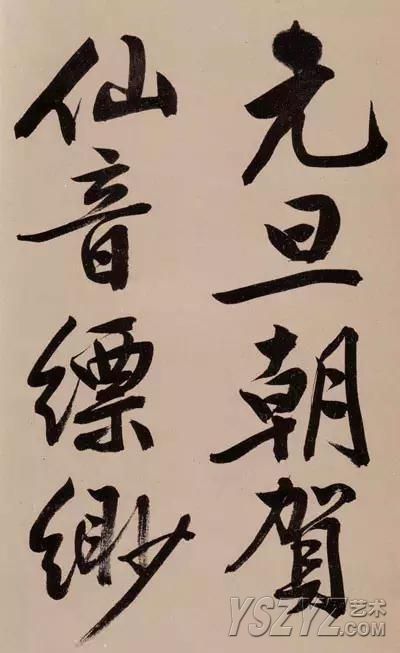 元旦朝賀
仙音縹緲
YSZYZ艺术
.COM